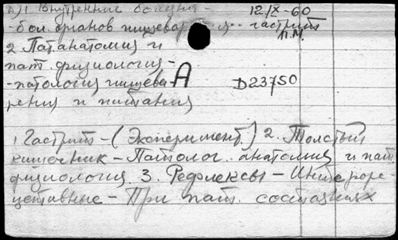 п/1 Внутренние болезни - 12/IX-60
- бол. органов пищевар... - гастрит
2 Патанатомия и П.М.
пат. физиология -
- патология пищева А D23750
рения и питания
1 Гастрит - (Эксперимент.) 2. Толстый
кишечник - Патолог. анатомия и пат.
физиология 3. Рефлексы - Интероре
цептивные - При пат. состояниях